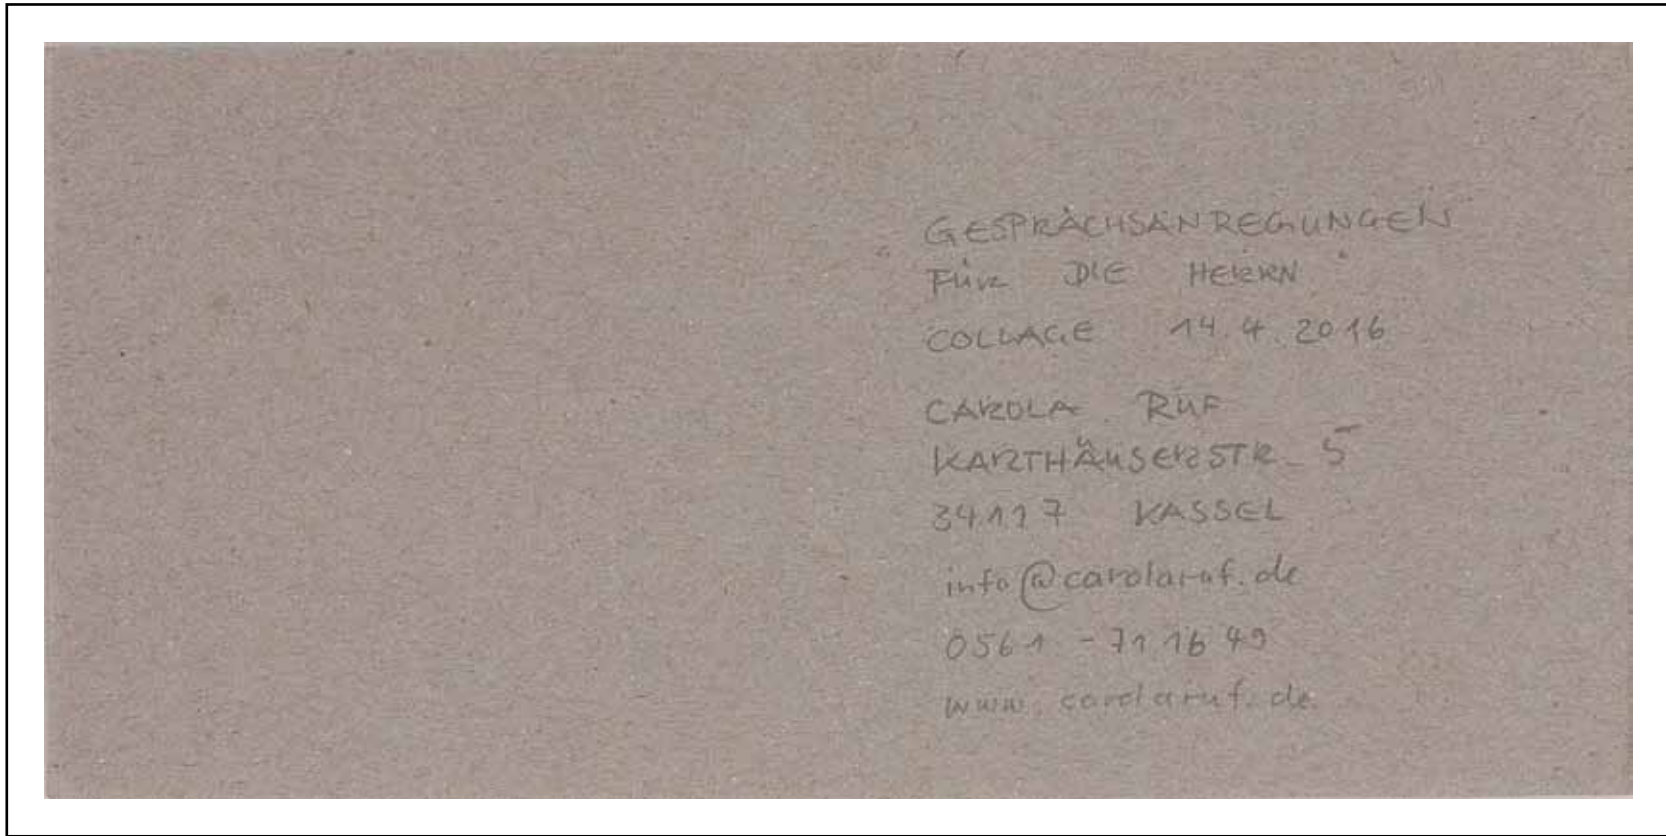 GESPRÄCHSANREGUNGEN
FÜR DIE HERRN"
COLLAGE 14.4.2016
CAROLA RUF
KARTHÄUSERSTR. 5
34117 KASSEL
info@carolaruf.de
0561 - 71 16 49
www.carolaruf.de